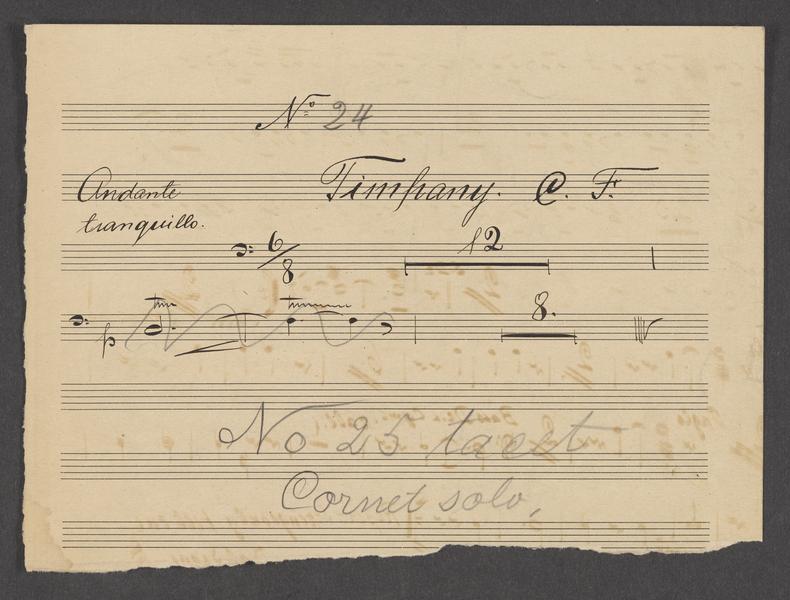 No 24
Andante Timpany. C. F.
tranquillo.
6/8 12
p 8.
No 25 tacet
Cornet solo,